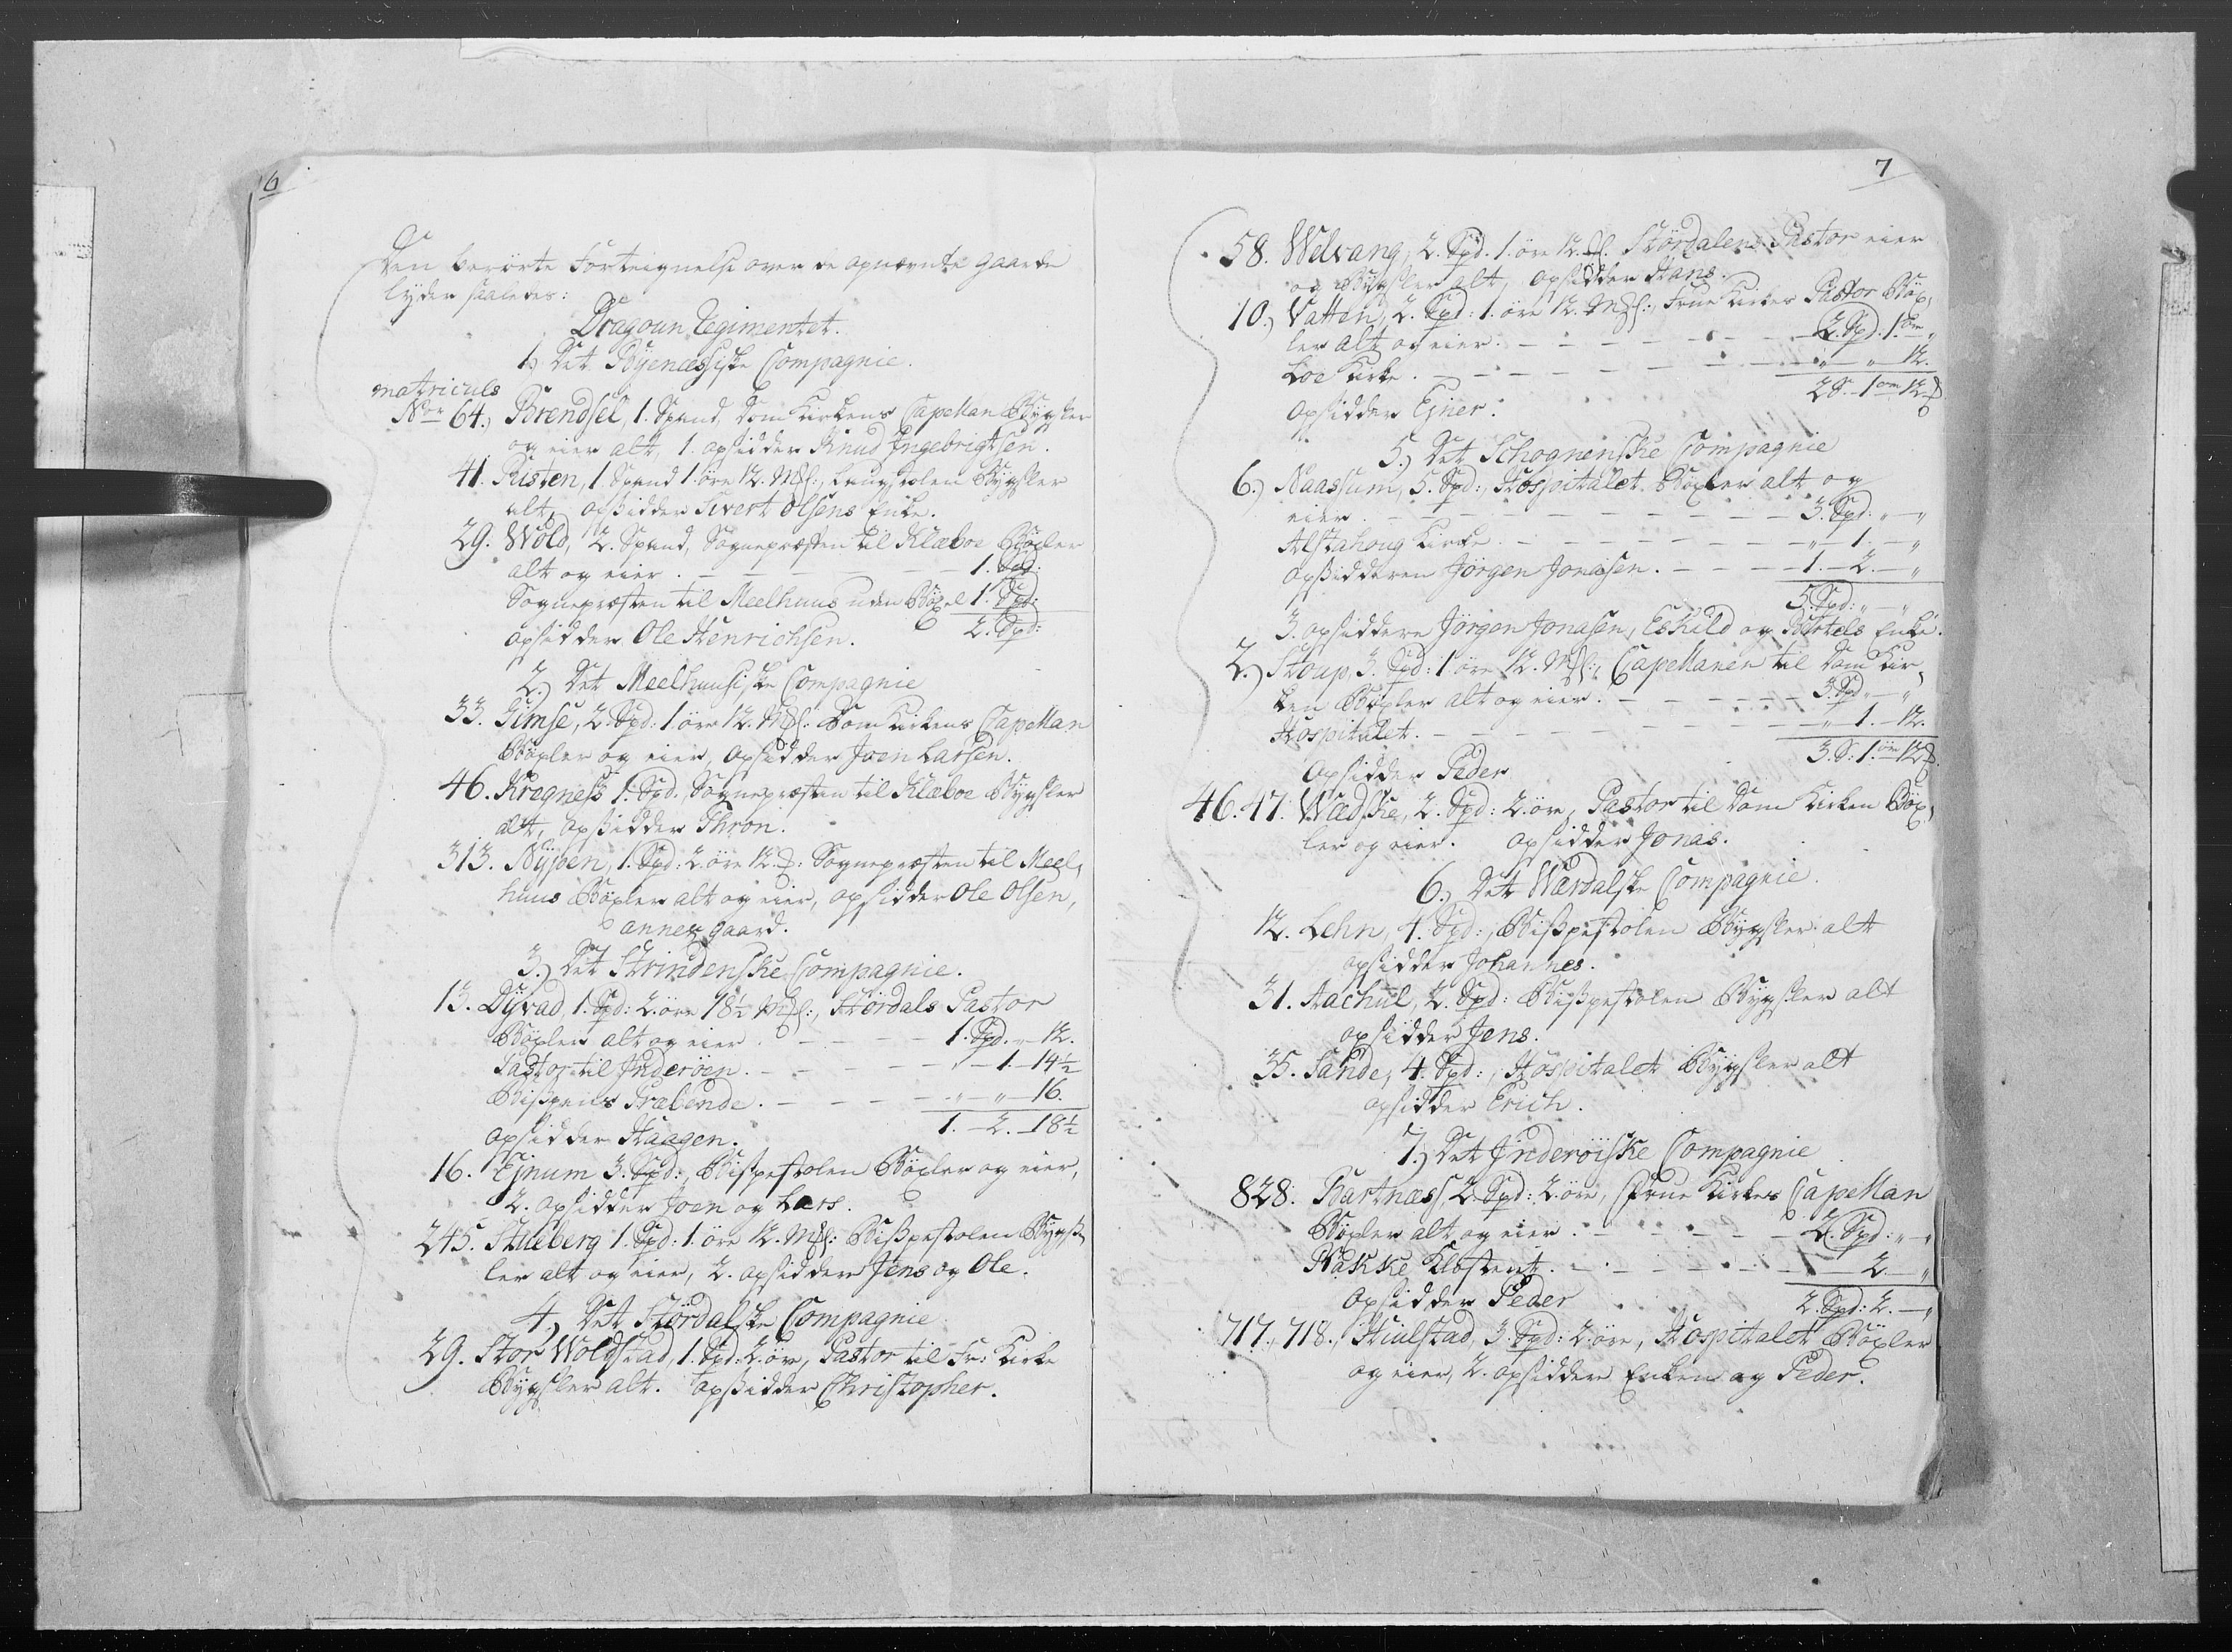 6
Den berörte Forteignelse over de opnævnte gaarde
lyder saaledes:
Dragoun Regimentet.
1.) Det Byenæssiske Compagnie.
matriculs
Nor 64.) Brendsel, 1. Spand, Dom Kirkens Capellan Bygsler
og eier alt, 1. opsidder Knud Ingebrigtsen.
41. Risten, 1. Spand 1. öre 12. Mkl:, Laugstolen Bygsler
alt, opsidder Sivert Olsens Enke.
29. Wold, 2. Spand, Sognepræsten til Klæboe Böxler
alt og eier. — — — — — 1. Spd:
Sognepræsten til Meelhuus uden Böxel 1. Spd:
opsidder Ole Henrichsen. 2. Spd:
2.) Det Meelhuusiske Compagnie
33. Gimse, 2. Spd: 1. öre 12. Mkl: Dom Kirkens Capellan
Böxler og eier, opsidder Joen Larsen.
46. Kregness 1. Spd., Sognepræsten til Klæboe Bygsler
alt, opsidder Thron.
313. Nypen, 1. Spd: 2. öre 12. Sognepræsten til Meel,
huus Böxler alt og eier, opsidder Ole Olsen,
annex gaard.
3.) Det Strindenske Compagnie.
13. Dyvad, 1. Spd: 2. öre 18½ Mkl:, Stördals Pastor
Böxler alt og eier. — — — — 1. Spd. „ 12.
Pastor til Inderöen. — — — — „ — 1. — 14½
Bispens Præbende. — — — — „ „ — 16.
opsidder Haagen. 1. — 2. — 18½
16. Ejnum 3. Spd:, Bispestolen Böxler og eier,
2. opsidder Joen og Lars.
245. Stueberg 1. Spd: 1. öre 12. Mkl: Bispestolen Bygs,
ler alt og eier, 2. opsidder Jens og Ole.
4.) Det Stördalske Compagnie
29. Stor Woldstad, 1. Spd: 2. öre, Pastor til Fr: Kirke
Bygsler alt. opsidder Christopher.
7
58. Welvang, 2. Spd. 1. öre 12. Stördalens Pastor eier
og Bygsler alt, opsidder Hans.
10.) Vatten, 2. Spd: 1. öre 12. Mkl:, Frue Kirkes Pastor Böx,
ler alt og eier. — — — — — 2. Spd. 1. öre „
Loe Kirke. — — — — — „ „ — 12.
opsidder Ejner. 2 S. — 1 öre 12
5.) Det Schognenske Compagnie
6.) Naassum, 5. Spd:, Hospitalet Böxler alt og
eier. — — — — — 3. Spd: „ — „
Alstahoug Kirke. — — — — — „ — 1. — „
opsidderen Jörgen Jonasen. — — — 1. — 2. — „
5. Spd: „ — „
3. opsiddere Jörgen Jonasen, Eskild og Bartels Enke.
2.) Stoup, 3. Spd: 1 öre 12. Mkl:, Capellanen til Dom Kir,
ken Böxler alt og eier. — — — 3. Spd „ — „
Hospitalet. — — — — — „ 1. — 12.
opsidder Peder 3. S: 1. öre 12
46. 47. Wædske, 2. Spd: 2. öre, Pastor til Dom Kirken Böx,
ler og eier. opsidder Jonas.
6.) Det Wærdalske Compagnie.
12. Lehn, 4. Spd:, Bispestolen Bygsler alt
opsidder Johannes.
31. Hachul, 2. Spd: Bispestolen Bygsler alt
opsidder Jens.
35. Sande, 4. Spd:, Hospitalet Bygsler alt
opsidder Erich.
7.) Det Inderöiske Compagnie
828. Bartnæss 2. Spd: 2. öre, Frue Kirkes Capellan
Böxler alt og eier. — — — — — 2. Spd: „ — „
Bakke Klostent. — — — — — 2. — „
opsidder Peder 2. Spd: 2. — „
717., 718. Hiulstad, 3. Spd: 2. öre, Hospitalet Böxler
og eier, 2. opsidder Enken og Peder.